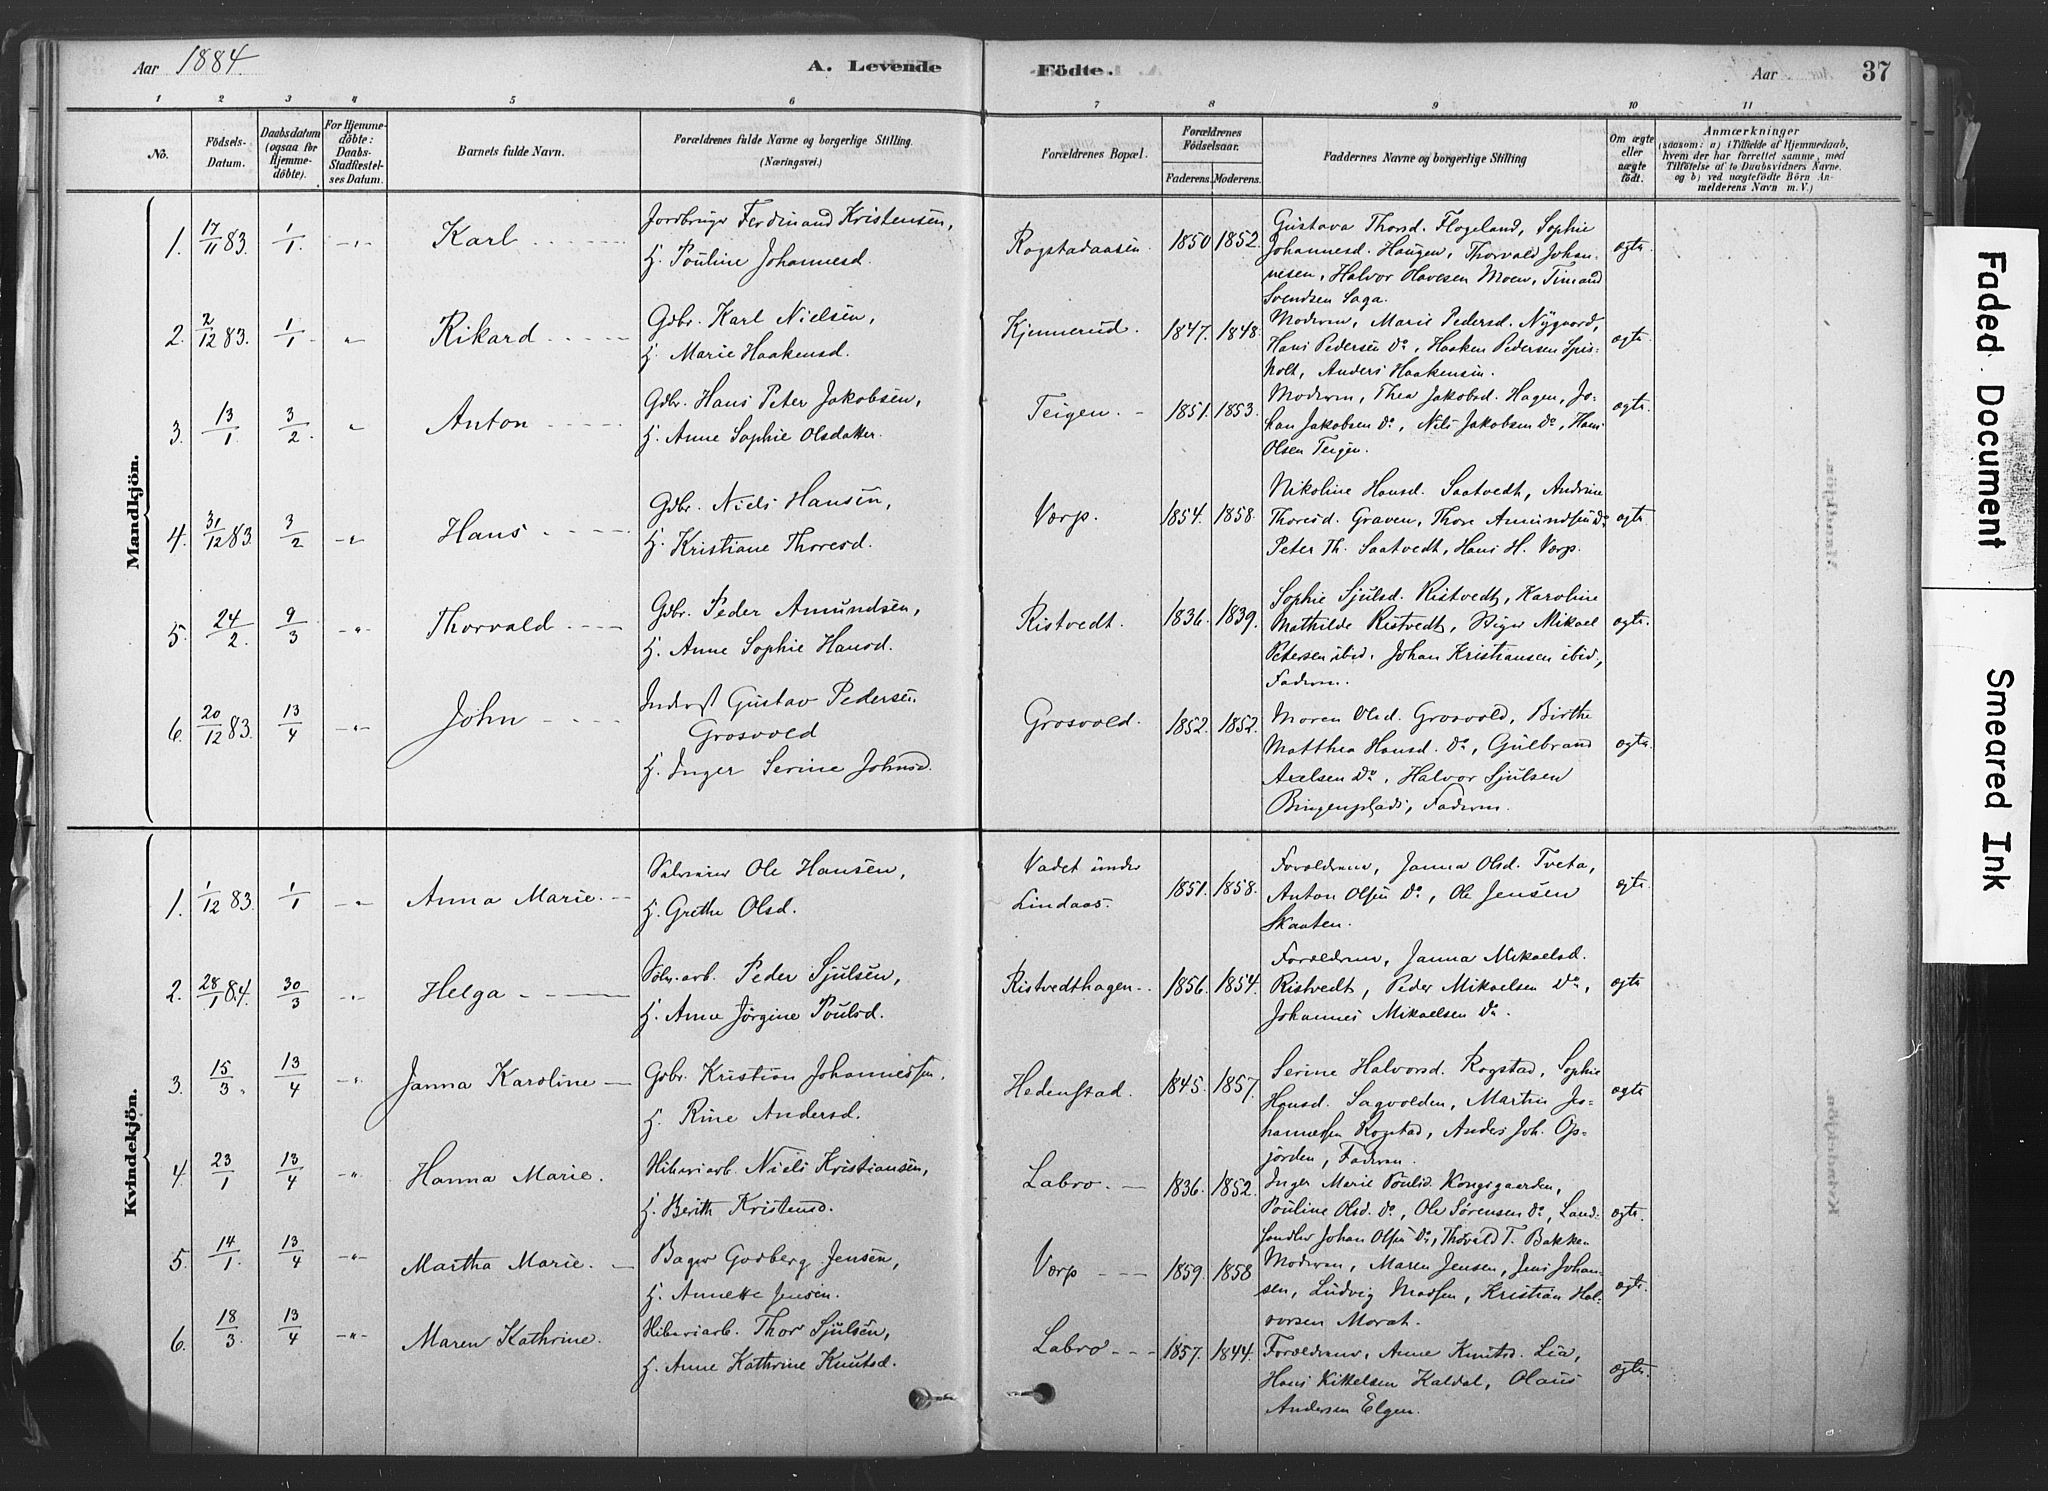 Aar 1884.
A. Levende
Födte.
Aar
37
1 2 3 4 5 6 7 8 9 10 11
No.
Födsels-
Datum.
Daabsdatum
(ogsaa for
Hjemme-
döbte).
For Hjemme-
döbte:
Daabs-
Stadfestel-
ses Datum.
Barnets fulde Navn.
Forældrenes fulde Navne og borgerlige Stilling.
(Næringsvei.)
Forældrenes Bopæl.
Forældrenes
Födselsaar.
Faderens. Moderens.
Faddernes Navne og borgerlige Stilling
Om ægte
eller
uægte
födt.
Anmærkninger
(saasom: a) i Tilfælde af Hjemmedaab,
hvem der har forrettet samme, med
Tilföielse af to Daabsvidners Navne.
og b) ved uægtefödte Börn An-
melderens Navn m. V.)
Mandkjön.
1. 17/11 83. 1/1 -"- Karl
Jordbruger Ferdinand Kristensen,
H. Pouline Johannesd.
Rogstadaasen. 1850 1852.
Gustava Thorsd. Flogeland, Sophie
Johannesd. Haugen, Thorvald Johan-
nesen, Halvor Olavesen Moen, Timand
Svendsen Saga.
ægte.
2. 2/12 83. 1/1. " Rikard
Gdbr. Karl Nielsen,
H. Marie Haakensd.
Kjennerud. 1847. 1848.
Moderen, Marie Pedersd. Nygaard,
Hans Pedersen Do, Haaken Pedersen Spis-
holt, Anders Haakensen.
ægte.
3. 13/1. 3/2. " Anton
Gdbr. Hans Peter Jakobsen,
H. Anne Sophie Olsdatter.
Teigen. 1851. 1853.
Moderen, Thea Jakobsd. Hagen, Jo-
han Jakobsen Do, Nils Jakobsen Do, Hans
Olsen Teigen.
ægte.
4. 31/12 83. 3/2 -"- Hans
Gdbr. Niels Hansen,
H. Kristiane Thoresd.
Værp. 1854. 1858.
Nikoline Hansd. Saatvedt, Andrine
Thoresd. Graven, Thore Amundsen Do
Peter Th. Saatvedt, Hans H. Værp.
ægte.
5. 24/2. 9/3 -"- Thorvald
Gdbr. Peder Amundsen,
H. Anne Sophie Hansd.
Ristvedt. 1836. 1839.
Sophie Sjulsd. Ristvedt, Karoline
Mathilde Ristvedt, Mikael
Petersen ibid. Johan Kristiansen ibid,
Faderen.
ægte.
6. 20/12 83. 13/4 -"- John
Inderst Gustav Pedersen
Grosvold
H. Inger Serine Johnsd.
Grosvold. 1852. 1852.
Maren Olsd. Grosvold, Birthe
Matthea Hansd. Do, Gulbrand
Axelsen Do, Halvor Sjulsen
Bingenplads, Faderen.
ægte.
Kvindekjön.
1. 1/12 83. 1/1 -"- Anna Marie.
Ole Hansen,
H. Grethe Olsd.
Vadet under
Lindaas. 1851. 1858.
Forældrene, Janna Olsd. Tveta,
Anton Olsen Do, Ole Jensen
Skaaten.
ægte.
2. 28/1 84. 30/3 -"- Helga
Sølv.arb. Peder Sjulsen,
H. Anne Jørgine Poulsd.
Ristvedthagen. 1856. 1854.
Forældrene, Janna Mikaelsd.
Ristvedt, Peder Mikaelsen Do,
Johannes Mikaelsen Do
ægte
3. 15/3. 13/4 -"- Janna Karoline
Gdbr. Kristian Johannessen,
H. Rine Andersd.
Hedenstad. 1845. 1857.
Serine Halvorsd. Rogstad, Sophie
Hansd. Sagvolden, Martin Jo-
hannessen Rogstad, Anders Joh. Op-
jörden, Faderen.
ægte
4. 23/1 13/4 -"- Hanna Marie.
Sliberiarb. Niels Kristiansen,
H. Berith Kristensd.
Labro. 1836. 1852.
Inger Marie Poulsd. Kongsgaarden,
Pouline Olsd. Do, Ole Sørensen Do, Land-
handler Johan Olsen Do, Thorvald T. Bakken
ægte.
5. 14/1. 13/4 -"- Martha Marie.
Bager Godberg Jensen,
H. Annette Jensen.
Værp 1859. 1858
Moderen, Maren Jensen, Jens Johan-
sen, Ludvig Madsen, Kristian Hal-
vorsen Morat.
ægte.
6. 18/3. 13/4 -"- Maren Kathrine.
Sliberiarb. Thor Sjulsen,
H. Anne Kathrine Knutsd.
Labro 1857. 1844.
Forældrene, Anne Knutsd. Lia,
Hans Kittelsen Kaldal, Olaus
Andersen Elgen.
ægte.
Faded Document
Smeared Ink